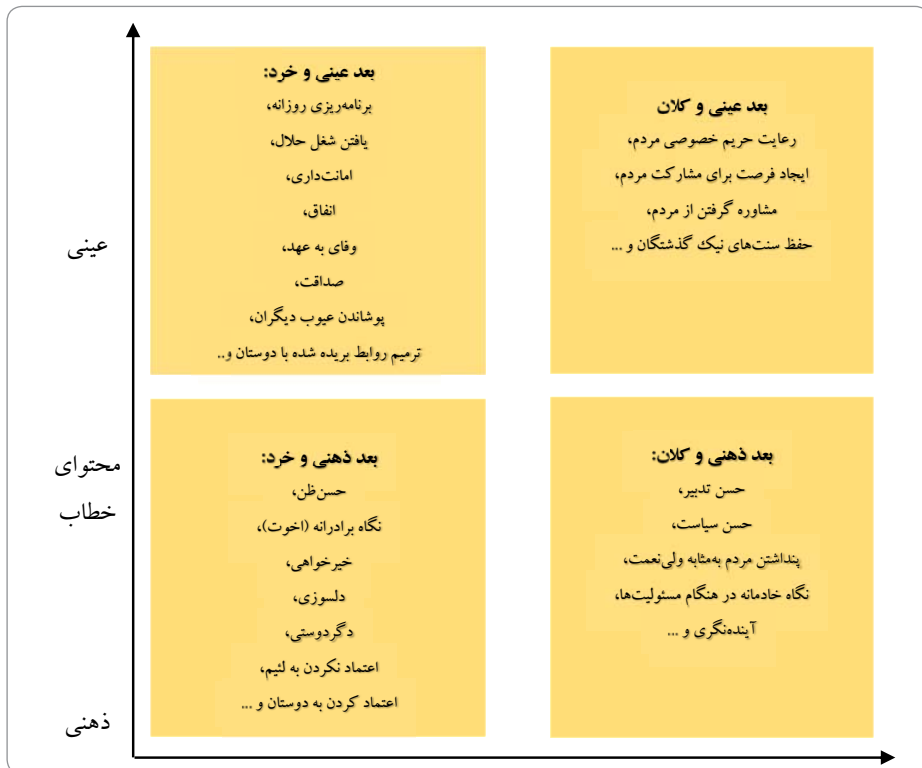 بعد عینی و خرد:
برنامه‌ریزی روزانه،
یافتن شغل حلال،
امانت‌داری،
انفاق،
وفای به عهد،
صداقت،
پوشاندن عیوب دیگران،
ترمیم روابط بریده شده با دوستان و..
بعد عینی و کلان
رعایت حریم خصوصی مردم،
ایجاد فرصت برای مشارکت مردم،
مشاوره گرفتن از مردم،
حفظ سنت‌های نیک گذشتگان و ...
عینی
محتوای
خطاب
ذهنی
بعد ذهنی و خرد:
حسن‌ظن،
نگاه برادرانه (اخوت)،
خیرخواهی،
دلسوزی،
دگردوستی،
اعتماد نکردن به لئیم،
اعتماد کردن به دوستان و ...
بعد ذهنی و کلان:
حسن تدبیر،
حسن سیاست،
پنداشتن مردم به‌مثابه ولی‌نعمت،
نگاه خادمانه در هنگام مسئولیت‌ها،
آینده‌نگری و ...